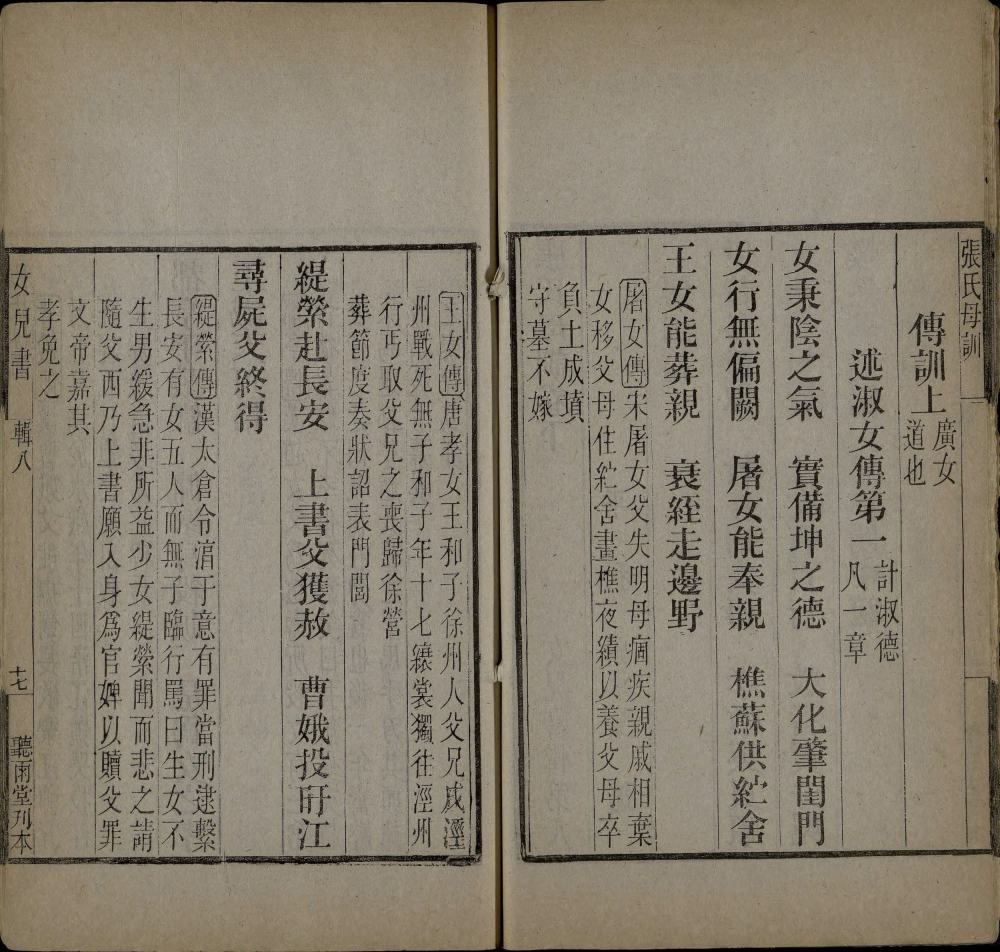 張氏母訓
傳訓上
廣女
道也
述淑女傳第一
計淑德
凡一章
女秉陰之氣 實備坤之德 大化肇閨門
女行無偏闕 屠女能奉親 樵蘇供紵舍
王女能葬親 衰絰走邊野
屠女傳宋屠女父失明母痼疾親戚相棄
女移父母住紵舍晝樵夜績以養父母卒
負土成墳
守墓不嫁
王女傳唐孝女王和子徐州人父兄戍涇
州戰死無子和子年十七縗裳獨往涇州
行丐取父兄之喪歸徐營
葬節度奏狀詔表門閭
緹縈赴長安 上書父獲赦 曹娥投盱江
尋屍父終得
緹縈傳漢太倉令淯于意有罪當刑逮繫
長安有女五人而無子臨行罵曰生女不
生男緩急非所益少女緹縈聞而悲之請
隨父西乃上書願入身爲官婢以贖父罪
文帝嘉其
孝免之
女兒書
輯八
十七
聽雨堂刊本